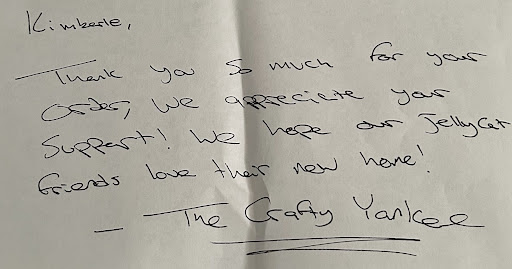 Kimberle,
Thank you so much for your
order, we appreciate your
support! We hope our Jellycat
friends love their new home!
- The Crafty Yankee